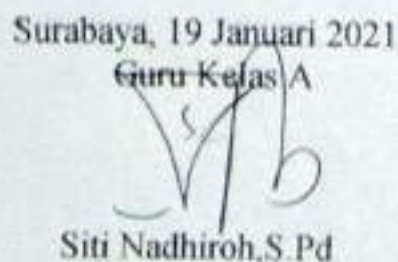 Surabaya, 19 Januari 2021
Guru Kelas A
Siti Nadhiroh,S.Pd